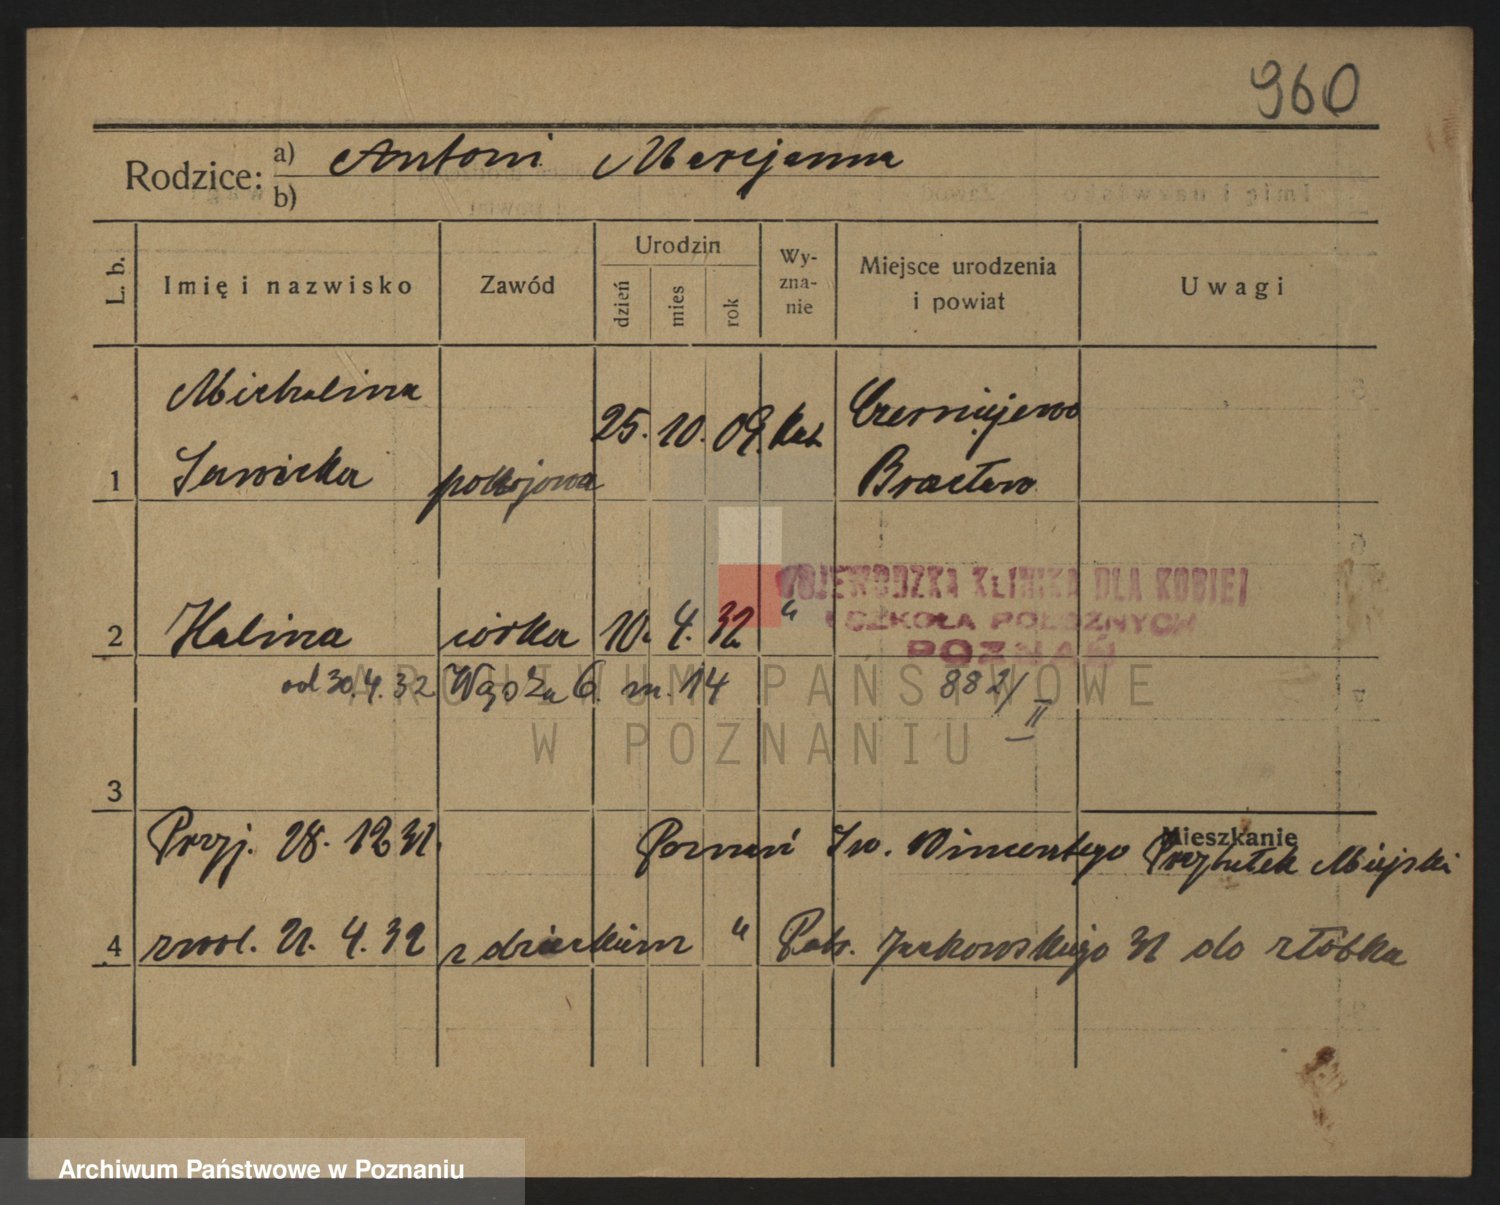 960
Rodzice: a) Antoni Maryjanna
b)
L. b. Imię i nazwisko Zawód Urodzin dzień mies rok Wy-zna-nie Miejsce urodzenia i powiat Uwagi
Michalina
25. 10. 09. kat Czerniejewo
1 Sawicka pokojowa
WOJEWÓDZKA KLINIKA DLA KOBIET
I SZKOŁA POŁOŻNYCH
POZNAŃ
2 Halina córka 10. 4. 32 "
od 30.4.32 6 m. 14 882/II
ARCHIWUM PAŃSTWOWE
W POZNANIU
3
Mieszkanie
Przyj. 28. 12 31. Poznań Św. Wincentego Przytułek Miejski
4 zwol. 21. 4. 32 z dzieckiem " Patr. Jackowskiego 31 do żłóbka
Archiwum Państwowe w Poznaniu